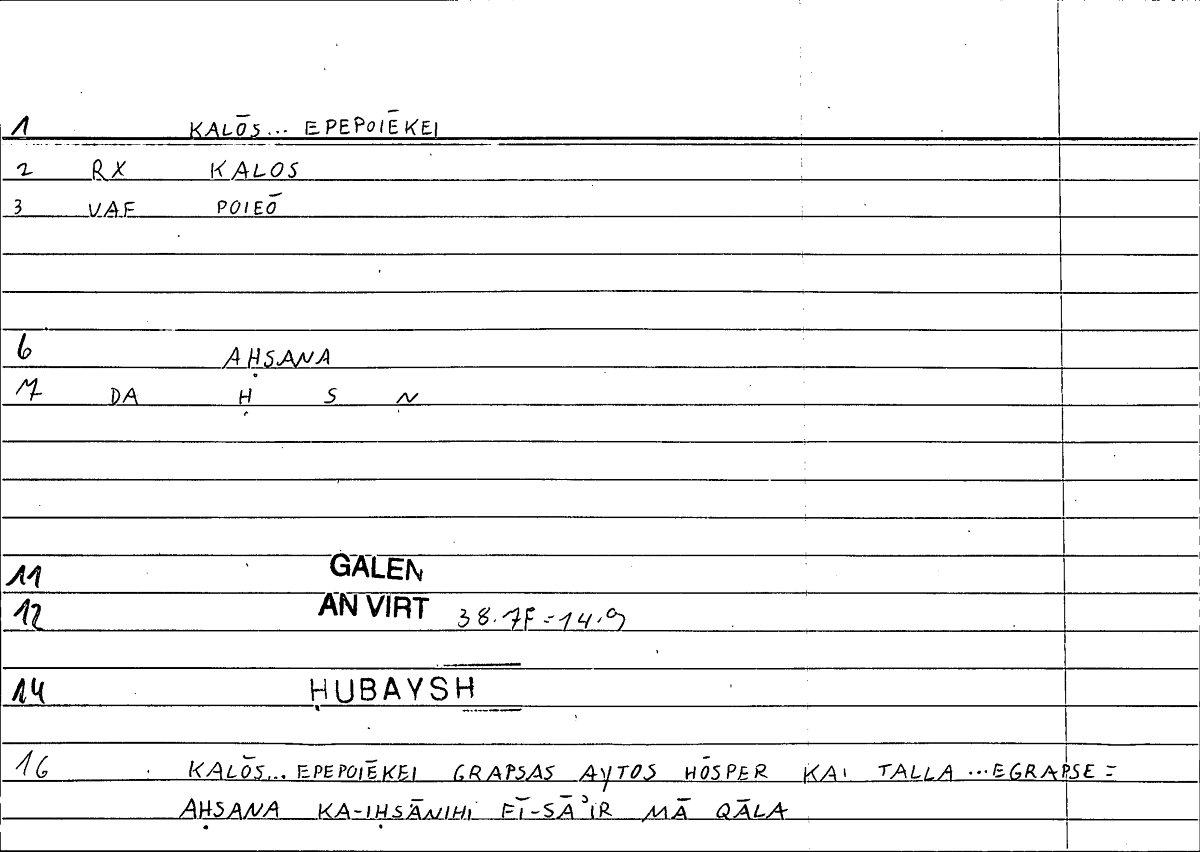 1 KALŌS... EPEPOIĒKEI
2 RX KALOS
3 VAF POIEŌ
6 AḤSANA
7 DA Ḥ S N
11 GALEN
12 AN VIRT 38.7F=14.9
14 ḤUBAYSH
16 KALŌS... EPEPOIĒKEI GRAPSAS AYTOS HŌSPER KAI TALLA ...EGRAPSE =
AḤSANA KA-IḤSĀNIHI FĪ-SĀʾIR MĀ QĀLA